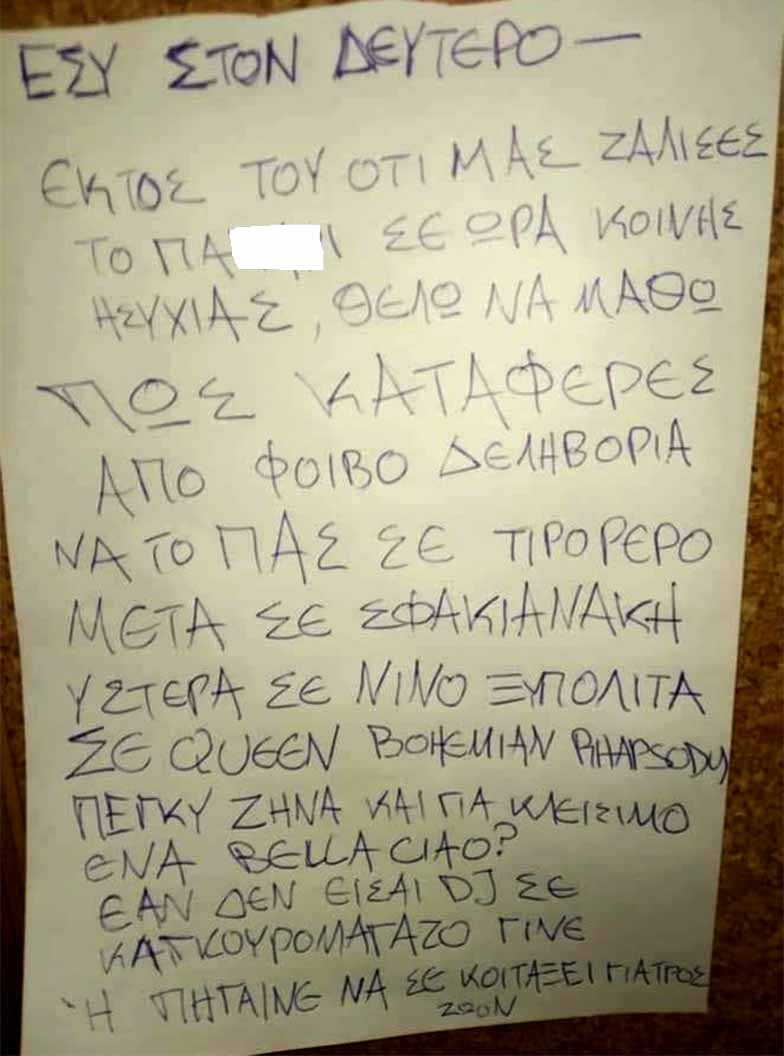 ΕΣΥ ΣΤΟΝ ΔΕΥΤΕΡΟ —
ΕΚΤΟΣ ΤΟΥ ΟΤΙ ΜΑΣ ΖΑΛΙΣΕΣ
ΤΟ ΠΑ Ι ΣΕ ΩΡΑ ΚΟΙΝΗΣ
ΗΣΥΧΙΑΣ, ΘΕΛΩ ΝΑ ΜΑΘΩ
ΠΩΣ ΚΑΤΑΦΕΡΕΣ
ΑΠΟ ΦΟΙΒΟ ΔΕΛΗΒΟΡΙΑ
ΝΑ ΤΟ ΠΑΣ ΣΕ ΤΙΡΟΡΕΡΟ
ΜΕΤΑ ΣΕ ΣΦΑΚΙΑΝΑΚΗ
ΥΣΤΕΡΑ ΣΕ ΝΙΝΟ ΞΥΠΟΛΙΤΑ
ΣΕ QUEEN BOHEMIAN RHAPSODY
ΠΕΓΚΥ ΖΗΝΑ ΚΑΙ ΓΙΑ ΚΛΕΙΣΙΜΟ
ΕΝΑ BELLA CIAO?
ΕΑΝ ΔΕΝ ΕΙΣΑΙ DJ ΣΕ
ΚΑΓΚΟΥΡΟΜΑΓΑΖΟ ΓΙΝΕ
Ή ΠΗΓΑΙΝΕ ΝΑ ΣΕ ΚΟΙΤΑΞΕΙ ΓΙΑΤΡΟΣ
ΖΩΩΝ